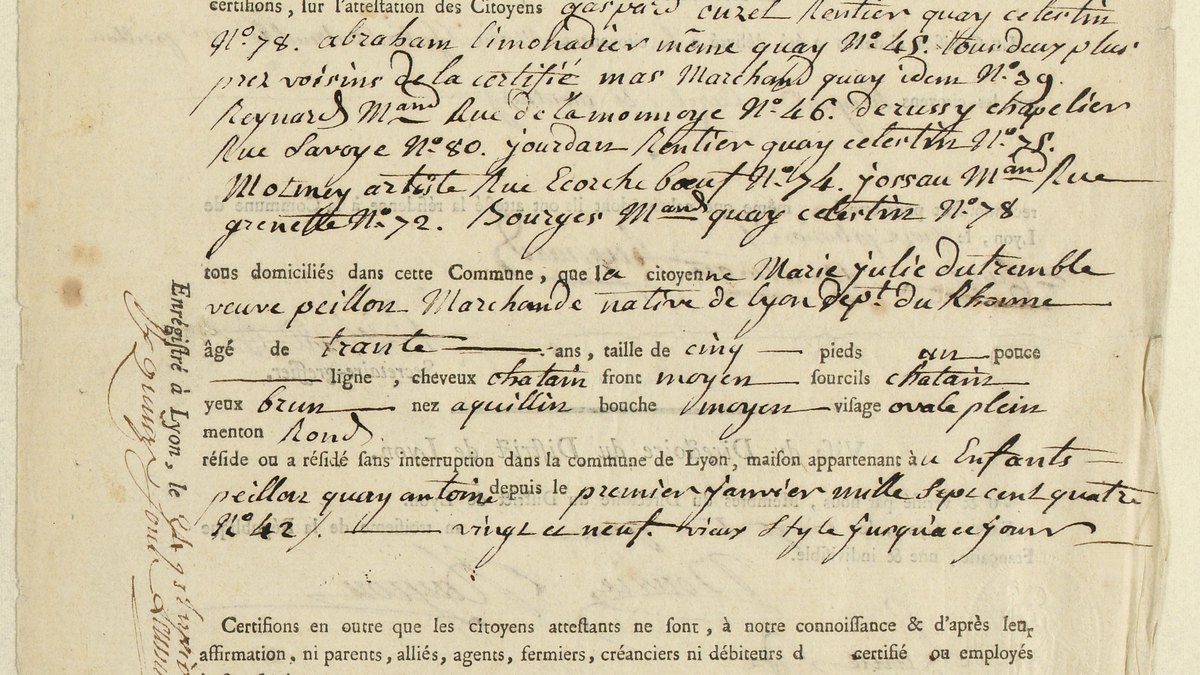 certifions, sur l'attestation des Citoyens gaspard curel Rentier quay celestin
N.° 78. abraham limonadier même quay N.° 45. tous deux plus
prez voisins de la certifié mas Marchand quay idem N.° 39.
Reynard Mand Rue de la monnoye N.° 46. derussy chapelier
Rue Savoye N.° 80. jourdan Rentier quay celestin N.° 75.
artiste Rue Ecorche bœuf N.° 74. jossau Mand Rue
grenette N.° 72. Bourges Mand quay celestin N.° 78
tous domiciliés dans cette Commune, que la citoyenne Marie julie dutremble
veuve peillon Marchande native de Lyon dept. du Rhonne
âgé de trante ans, taille de cinq pieds un pouce
ligne, cheveux chatain front moyen sourcils chatain
yeux brun nez aquillin bouche moyen visage ovale plein
menton Rond
réside ou a résidé sans interruption dans la commune de Lyon, maison appartenant au Enfants
peillon quay antoine depuis le premier janvier mille sept cent quatre
N.° 42. vingt et neuf. vieux style jusqu'a ce jour
Certifions en outre que les citoyens attestants ne sont, à notre connoissance & d'après leur
affirmation, ni parents, alliés, agents, fermiers, créanciers ni débiteurs d certifié ou employés
Enrégistré à Lyon, le